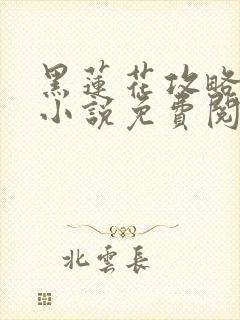 黑蓮花攻略
小說免費閱
北雲長